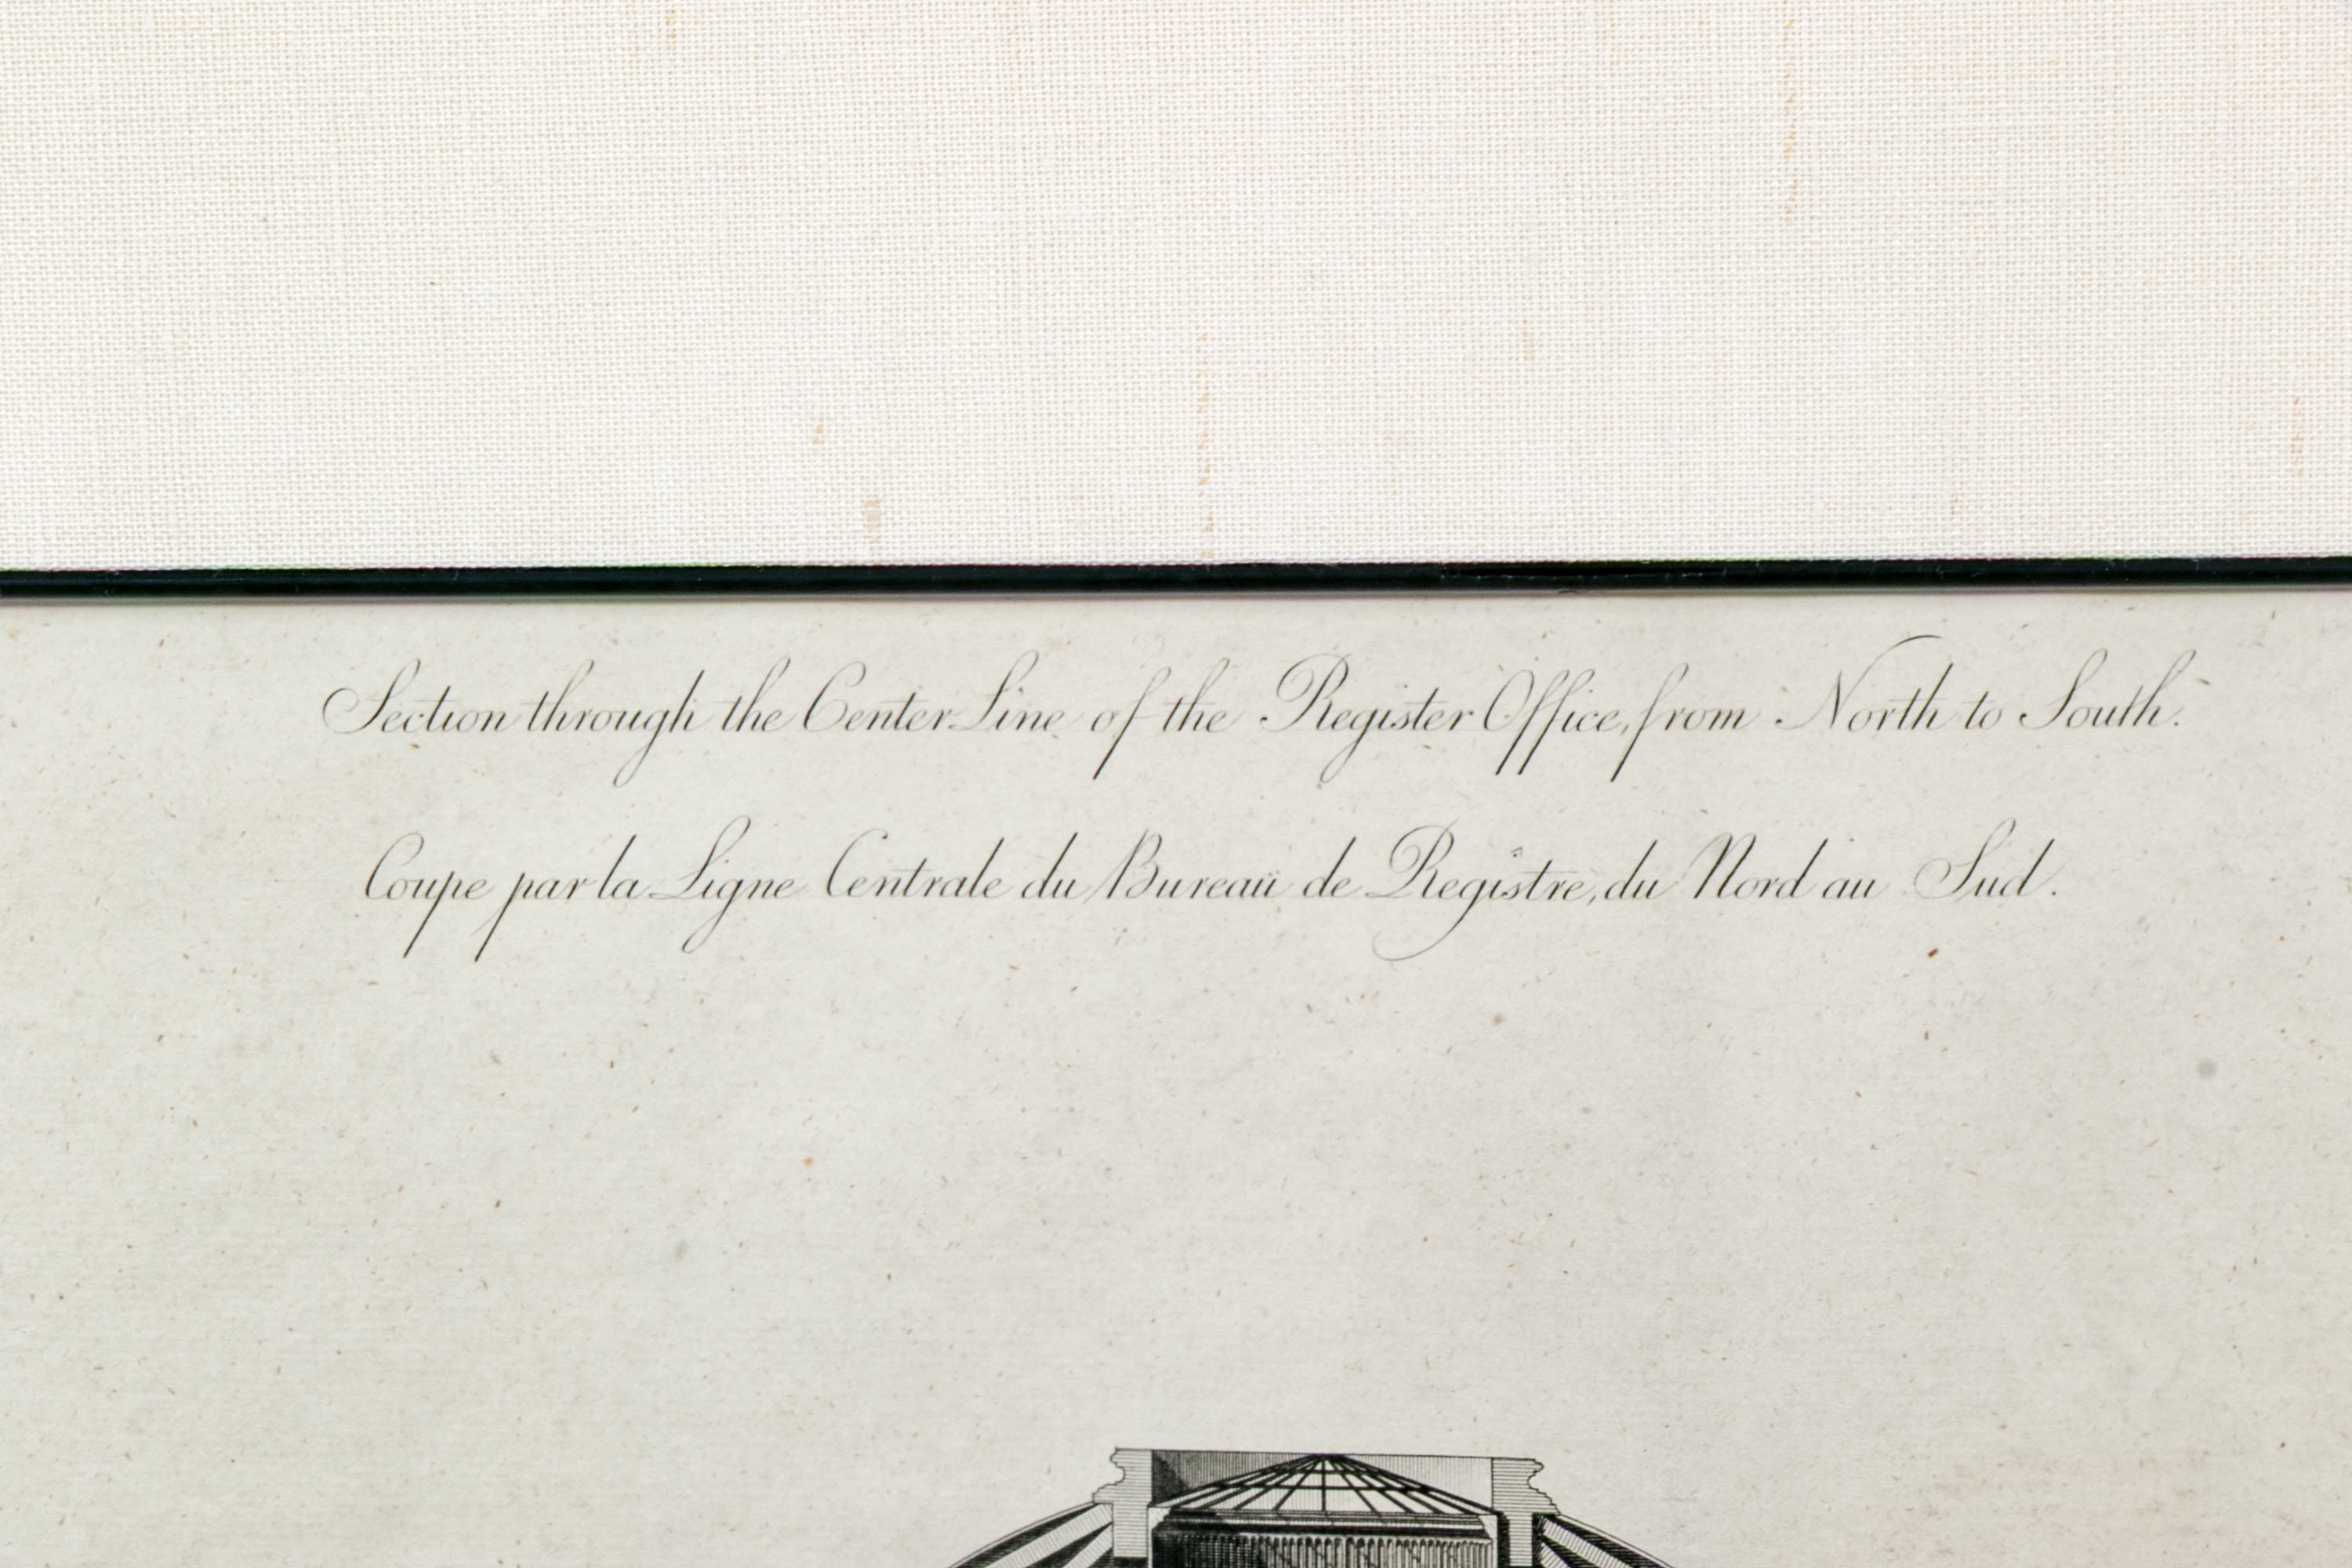 Section through the Center Line of the Register Office, from North to South.
Coupe par la Ligne Centrale du Bureau de Registre, du Nord au Sud.